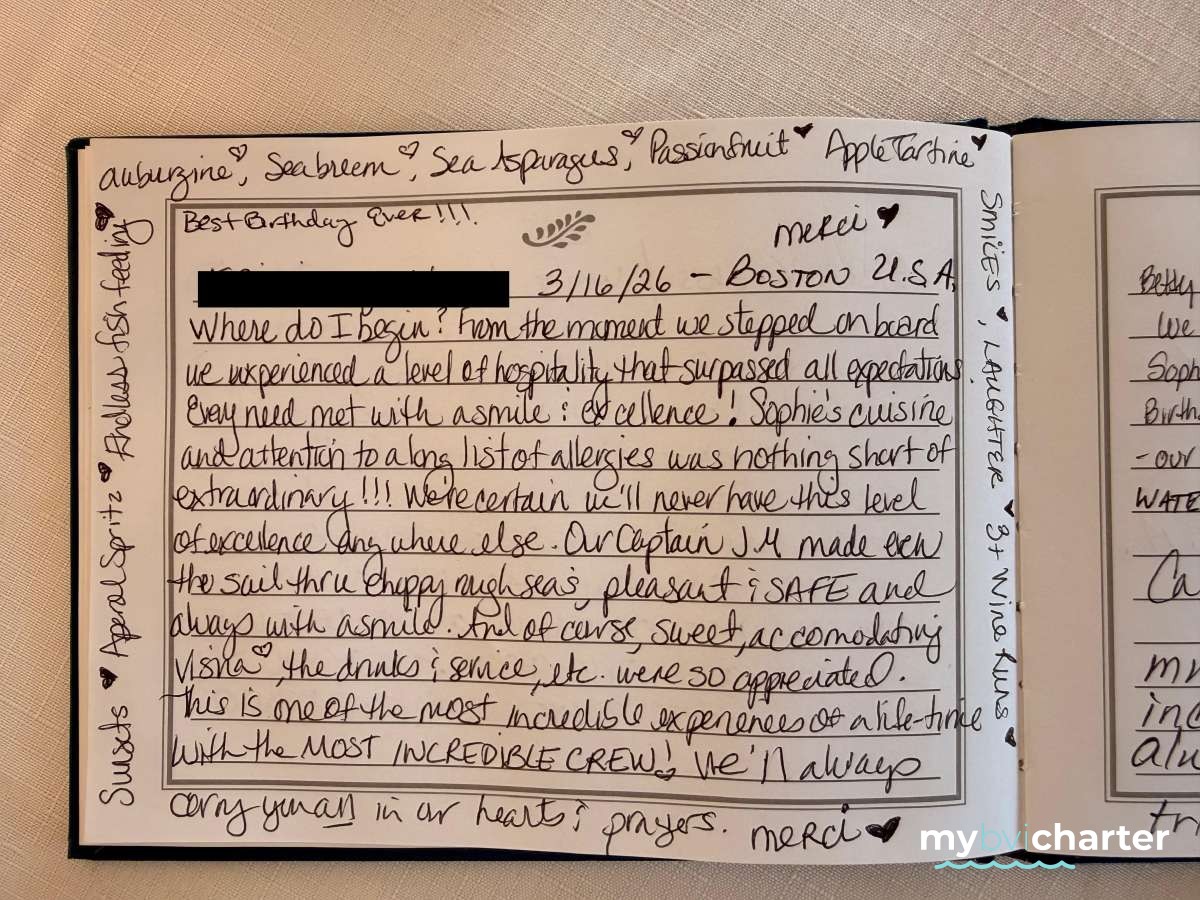 auburzine ♡, Seabreem ♡, Sea Asparagus ♡, Passionfruit ♥ Apple Tartine ♥
Best Birthday Ever!!!
merci ♥
3/16/26 - BOSTON U.S.A.
Where do I begin? From the moment we stepped on board
we experienced a level of hospitality that surpassed all expectations.
Every need met with a smile & excellence! Sophie's cuisine
and attention to a long list of allergies was nothing short of
extraordinary!!! We're certain we'll never have this level
of excellence anywhere else. Our Captain J.M made even
the sail thru choppy rough seas, pleasant & SAFE and
always with a smile. And of course, sweet, accomodating
♡, the drinks & service, etc. were so appreciated.
This is one of the most incredible experiences of a life-time
with the MOST INCREDIBLE CREW! We'll always
carry you all in our hearts & prayers. merci ♥
Sunsets ♥ Apperal Spritz ♥ Endless fish feeding ♥
SMILES ♥, LAUGHTER ♥ 3+ Wine Runs ♥
Betty
We
Soph
Birth
- our
WATE
Ca
inc
alw
mybvicharter